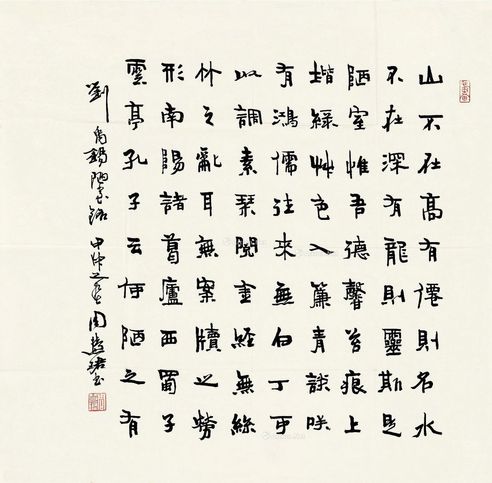 山不在高有僊則名水
不在深有龍則靈斯是
陋室惟吾德馨苔痕上
堦綠艸色入簾青談咲
有鴻儒往来無白丁可
以調素琴閱金經無絲
竹之亂耳無案牘之勞
形南陽諸葛廬西蜀子
雲亭孔子云何陋之有
劉禹錫陋室銘 甲申之 周慧珺書